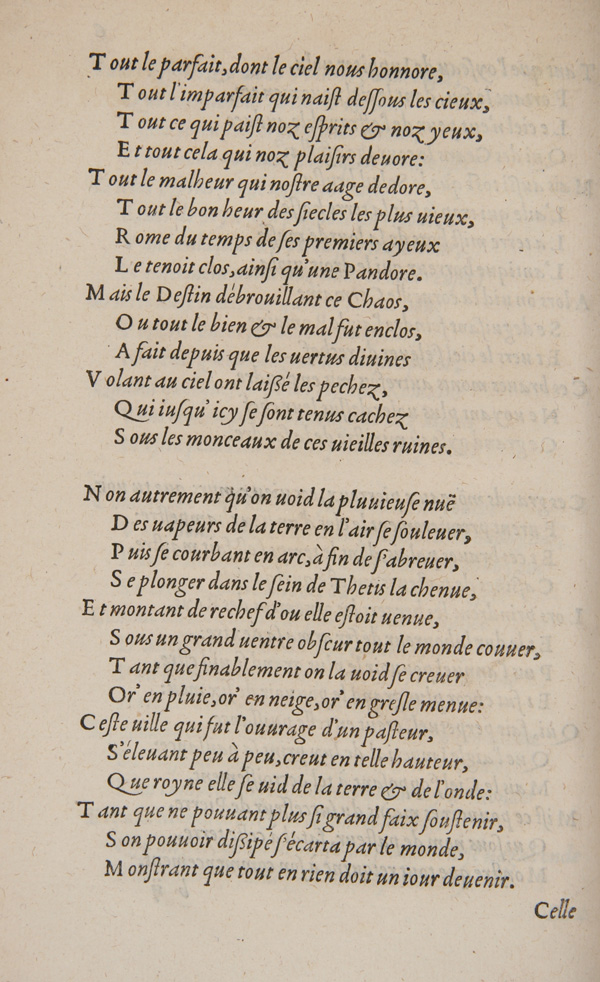 Tout le parfait, dont le ciel nous honnore,
Tout l'imparfait qui naiſt deſſous les cieux,
Tout ce qui paiſt noz eſprits & noz yeux,
Et tout cela qui noz plaiſirs deuore:
Tout le malheur qui noſtre aage dedore,
Tout le bon heur des ſiecles les plus uieux,
Rome du temps de ſes premiers ayeux
Le tenoit clos, ainſi qu'une Pandore.
Mais le Deſtin débrouillant ce Chaos,
Ou tout le bien & le mal fut enclos,
A fait depuis que les uertus diuines
Volant au ciel ont laißé les pechez,
Qui iuſqu'icy ſe ſont tenus cachez
Sous les monceaux de ces uieilles ruines.
Non autrement qu'on uoid la pluuieuſe nuë
Des uapeurs de la terre en l'air ſe ſouleuer,
Puis ſe courbant en arc, à fin de ſ'abreuer,
Se plonger dans le ſein de Thetis la chenue,
Et montant de rechef d'ou elle eſtoit uenue,
Sous un grand uentre obſcur tout le monde couuer,
Tant que finablement on la uoid ſe creuer
Or' en pluie, or' en neige, or' en greſle menue:
Ceſte uille qui fut l'ouurage d'un paſteur,
S'éleuant peu à peu, creut en telle hauteur,
Que royne elle ſe uid de la terre & de l'onde:
Tant que ne pouuant plus ſi grand faix ſouſtenir,
Son pouuoir dißipé ſ'écarta par le monde,
Monſtrant que tout en rien doit un iour deuenir.
Celle